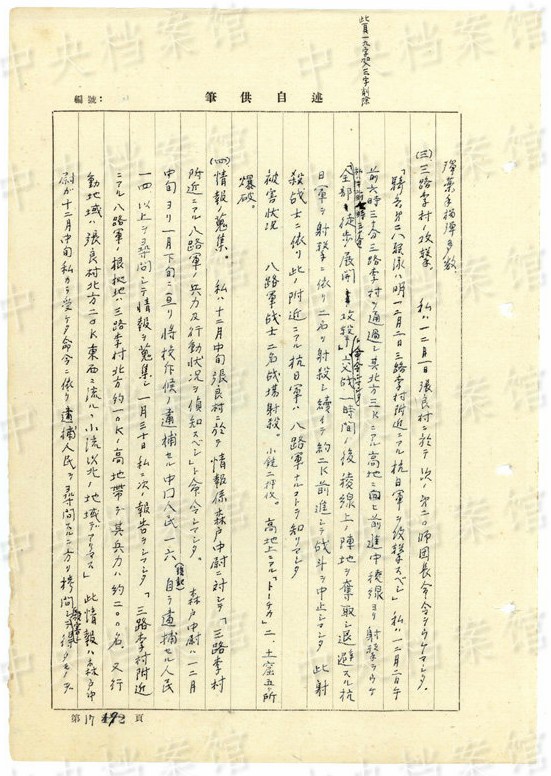 此頁一九字加入三字削除
筆供自述
編號:
弾薬手榴弾多数。
(三)三路李村ノ攻撃。 私ハ一二月一日張良村ニ於テ 次ノ第二〇師団長命令ヲウケマシタ。
「騎兵第二八聯隊ハ明一二月二日三路李村附近ニアル抗日軍ヲ攻撃スベシ」 私ハ一二月二日午
前六時三十分三路李村ヲ通過シ其北方二Kニアル高地ニ向ヒ前進中稜線ヨリ射撃ヲウケ
全部ヲ徒歩展開 攻撃ヲ命令シマシタ 交戦一時間ノ後稜線上ノ陣地ヲ奪取シ退避スル抗
日軍ヲ射撃ニ依リ二名ヲ射殺シ続イテ約二K前進シテ戦斗ヲ中止シマシタ 此射
殺戦士ニ依リ此ノ附近ニアル抗日軍ハ八路軍ナルコトヲ知リマシタ
被害状況 八路軍戦士二名戦場射殺。小銃二押収。高地上ニアル「トーチカ」二、土窑五ヶ所
爆破。
(四)情報ノ蒐集。 私ハ十二月中旬張良村ニ於テ情報係森戸中尉ニ対シテ「三路李村
附近ニアル八路軍ノ兵力及行動状況ヲ偵知スベシ」ト命令シマシタ。 森戸中尉ハ一二月
中旬ヨリ一月下旬ニ亘リ将校斥候ノ逮捕セル中国人民一六 自ラ逮捕セル人民
一四以上ヲ尋問シテ情報ヲ蒐集シ一月三十日私ニ次ノ報告ヲシマシタ。「三路李村附近
ニアル八路軍ノ根拠地ハ三路李村北方約一〇Kノ高地帯デ其兵力ハ約二〇〇名、又行
動地域ハ張良村北方二〇K東西ニ流ルヽ小流以北ノ地域デアリマス」 此情報ハ森戸中
尉ガ十二月中旬私カラ受ケタ命令ニ依リ逮捕人民ヲ尋問スル一方拷問シテ得タモノデ
第17頁